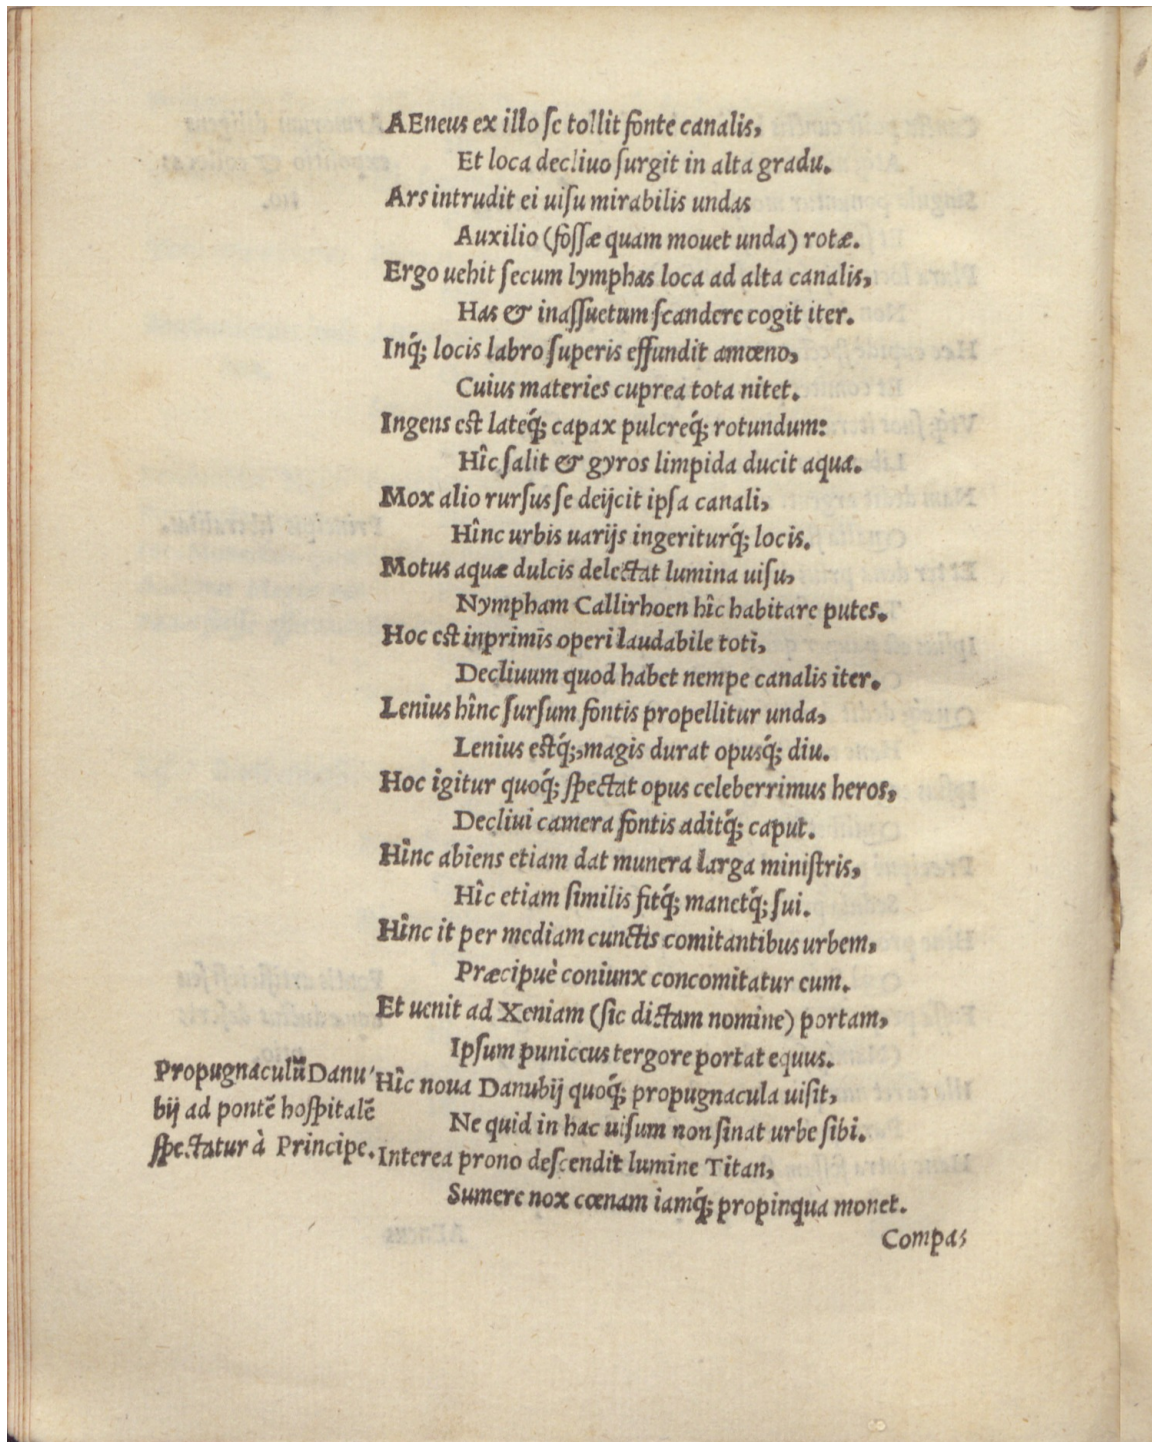 AEneus ex illo ſe tollit fonte canalis,
Et loca decliuo ſurgit in alta gradu.
Ars intrudit ei uiſu mirabilis undas
Auxilio (foſſæ quam mouet unda) rotæ.
Ergo uehit ſecum lymphas loca ad alta canalis,
Has & inaſſuetum ſcandere cogit iter.
Inq́; locis labro ſuperis effundit amœno,
Cuius materies cuprea tota nitet.
Ingens eſt lateq́; capax pulcreq́; rotundum:
Hîc ſalit & gyros limpida ducit aqua.
Mox alio rurſus ſe deijcit ipſa canali,
Hînc urbis uarijs ingeriturq́; locis.
Motus aquæ dulcis delectat lumina uiſu,
Nympham Callirhoen hîc habitare putes.
Hoc eſt inprimis operi laudabile toti,
Decliuum quod habet nempe canalis iter.
Lenius hînc ſurſum fontis propellitur unda,
Lenius eſtq́;, magis durat opusq́; diu.
Hoc igitur quoq́; ſpectat opus celeberrimus heros,
Decliui camera fontis aditq́; caput.
Hînc abiens etiam dat munera larga miniſtris,
Hîc etiam ſimilis fitq́; manetq́; ſui.
Hînc it per mediam cunctis comitantibus urbem,
Præcipuè coniunx concomitatur eum.
Et uenit ad Xeniam (ſic dictam nomine) portam,
Ipſum puniceus tergore portat equus.
Propugnaculũ Danu
bij ad pontẽ hoſpitalẽ
ſpectatur à Principe.
Hîc noua Danubij quoq́; propugnacula uiſit,
Ne quid in hac uiſum non ſinat urbe ſibi.
Interea prono deſcendit lumine Titan,
Sumere nox cœnam iamq́; propinqua monet.
Compas